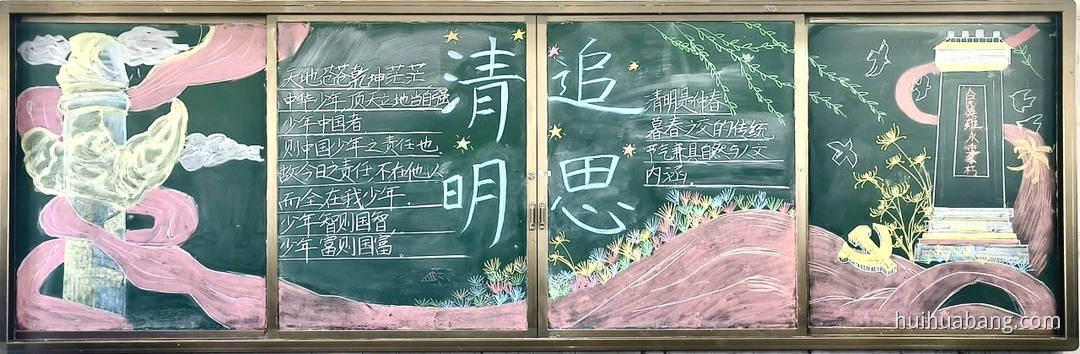 天地苍苍乾坤茫茫
中华少年顶天立地当自强
少年中国者
则中国少年之责任也
故今日之责任不在他人
而全在我少年.
少年智则国智,
少年富则国富。
清明
追思
清明是仲春
暮春之交的传统
节气兼具自然与人文
内涵。
人民英雄永垂不朽
huihuabang.com